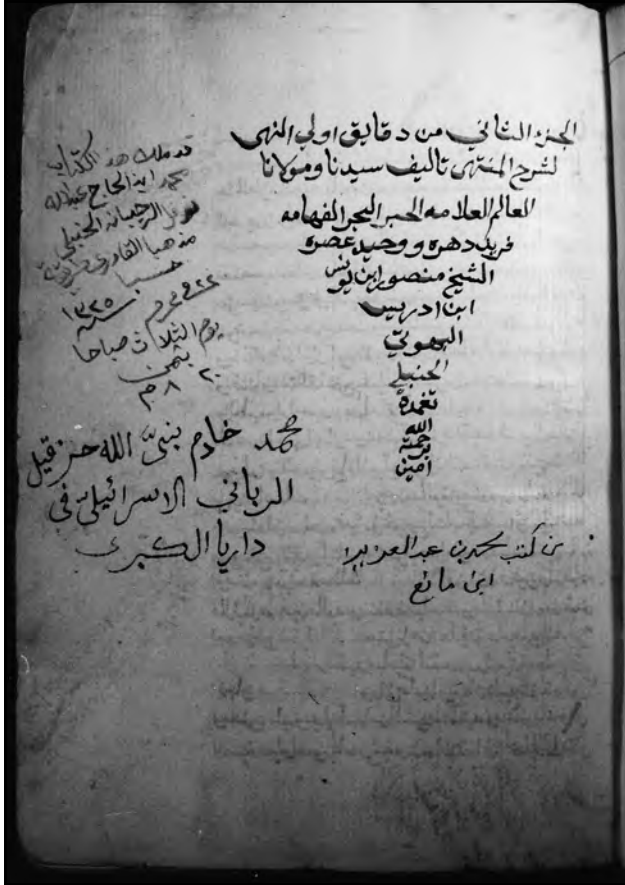 الجزء الثاني من دقايق اولي النهى
لشرح المنتهى تاليف سيدنا ومولانا
العالم العلامه الحبر البحر الفهامه
فريد دهره ووحيد عصره
الشيخ منصور ابن يونس
ابن ادريس
البهوتي
الحنبلي
تغمده
الله
برحمته
امين
قد ملك هذا الكتاب
محمد ابن الحاج عبدالله
الحنبلي
مذهبا القادري
حسبا
٢٢ محرم سنة ١٣٢٥
يوم الثلاث صباحا
بثمن
٢٠ ٨ م
محمد خادم بنيّ الله حزقيل
الرباني الاسرائيليّ في
داريا الكبرى
من كتب محمد بن عبد العزيز
ابن مانع